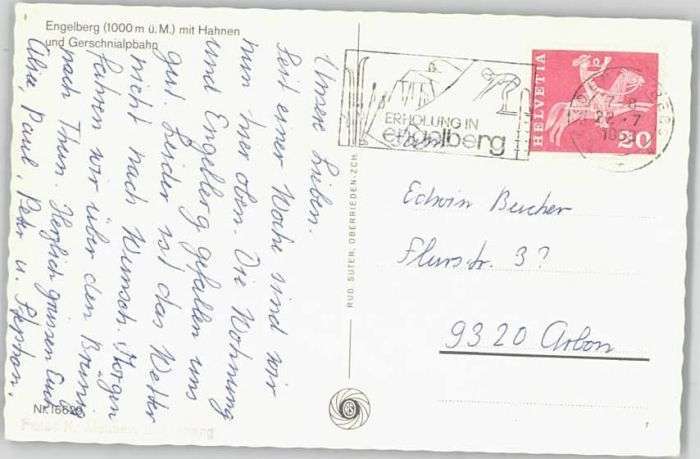 Engelberg (1000 m ü. M.) mit Hahnen
und Gerschnialpbahn
Unsere Lieben.
Seit einer Woche sind wir
nun hier oben. Die Wohnung
und Engelberg gefallen uns
gut. Leider ist das Wetter
nicht nach Wunsch. Morgen
fahren wir über den Brünig
nach Thun. Herzlich grüssen Euch
Alice, Paul, Peter u. Stephan.
Nr. 16620
RUD. SUTER, OBERRIEDEN-ZCH
ERHOLUNG IN
engelberg
HELVETIA
20
22.-7
Fam
Edwin Bucher
Flurstr. 3?
9320 Arbon